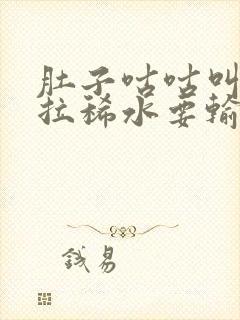 肚子咕咕叫
拉稀水要输
钱易